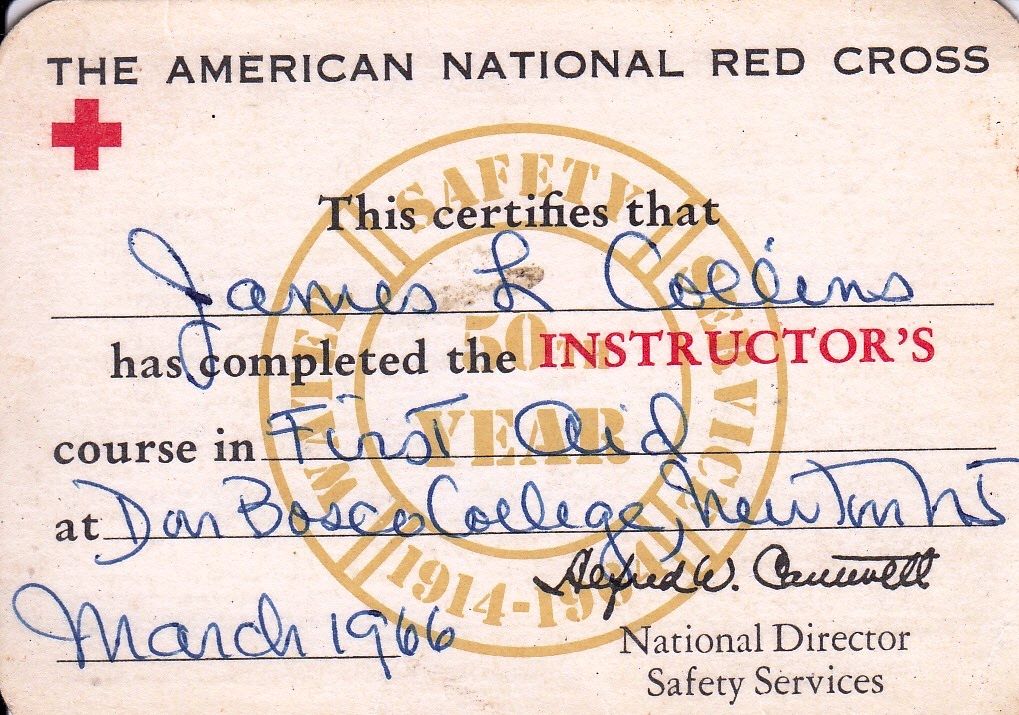 THE AMERICAN NATIONAL RED CROSS
This certifies that
James L Collins
has completed the INSTRUCTOR'S
course in First Aid
at Don Bosco College, Newton NJ
Alfred W. Cantwell
National Director
Safety Services
March 1966
WATER SAFETY SERVICE
50
YEAR
1914-1964